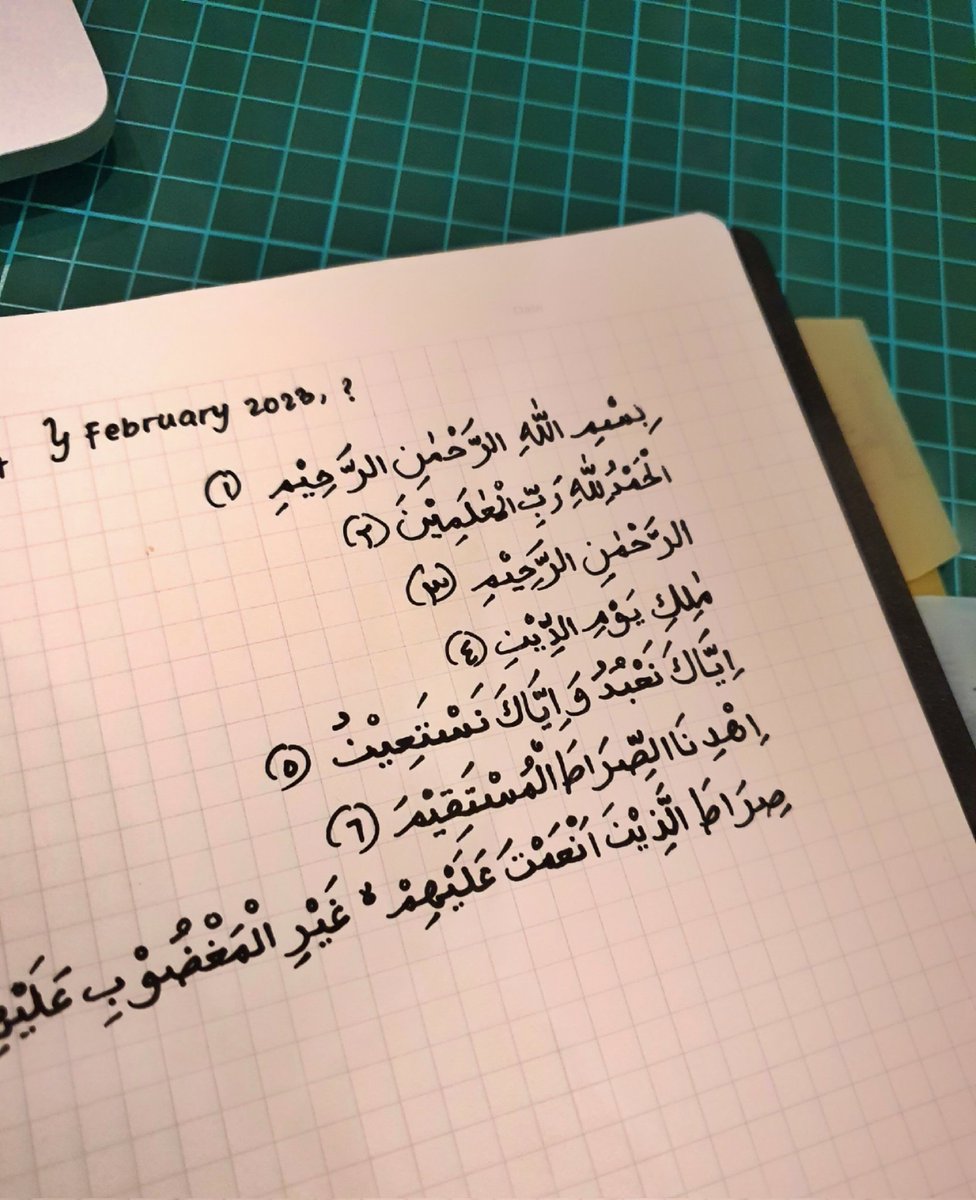 February 2023, ?
بِسْمِ اللّٰهِ الرَّحْمٰنِ الرَّحِيْمِ (١)
الْحَمْدُ لِلّٰهِ رَبِّ الْعٰلَمِيْنَ (٢)
الرَّحْمٰنِ الرَّحِيْمِ (٣)
مٰلِكِ يَوْمِ الدِّيْنِ (٤)
اِيَّاكَ نَعْبُدُ وَاِيَّاكَ نَسْتَعِيْنُ (٥)
اِهْدِنَا الصِّرَاطَ الْمُسْتَقِيْمَ (٦)
صِرَاطَ الَّذِيْنَ اَنْعَمْتَ عَلَيْهِمْ ۙ غَيْرِ الْمَغْضُوْبِ